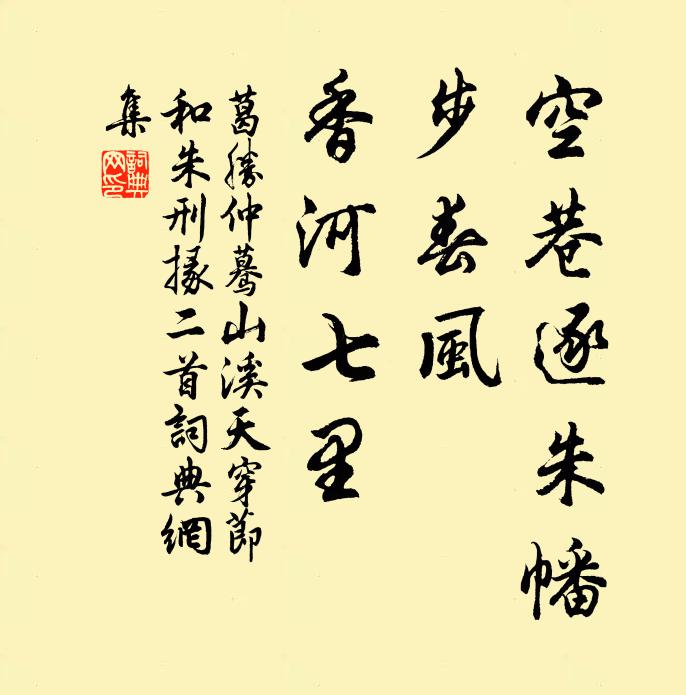 空巷逐朱幡
步春風
香河七里
葛勝仲驀山溪天穿節
和朱刑掾二首詞典網
集
詞典網印